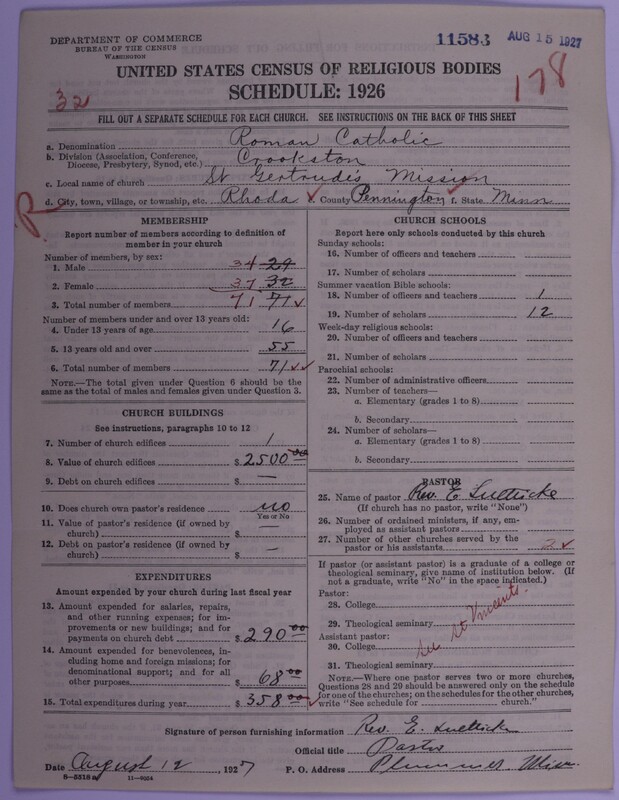 DEPARTMENT OF COMMERCE
BUREAU OF THE CENSUS
WASHINGTON
11583 AUG 15 1927
UNITED STATES CENSUS OF RELIGIOUS BODIES
SCHEDULE: 1926
32
178
FILL OUT A SEPARATE SCHEDULE FOR EACH CHURCH. SEE INSTRUCTIONS ON THE BACK OF THIS SHEET
a. Denomination Roman Catholic
b. Division (Association, Conference, Diocese, Presbytery, Synod, etc.) Crookston
c. Local name of church St Gertrude's Mission
R
d. City, town, village, or township, etc. Rhoda e. County Pennington f. State Minn
MEMBERSHIP
Report number of members according to definition of member in your church
Number of members, by sex:
1. Male 34 29
2. Female 37 32
3. Total number of members 71 71
Number of members under and over 13 years old:
4. Under 13 years of age 16
5. 13 years old and over 55
6. Total number of members 71
NOTE.—The total given under Question 6 should be the same as the total of males and females given under Question 3.
CHURCH BUILDINGS
See instructions, paragraphs 10 to 12
7. Number of church edifices 1
8. Value of church edifices $ 2500 00
9. Debt on church edifices $ —
10. Does church own pastor's residence no
Yes or No
11. Value of pastor's residence (if owned by church) $ —
12. Debt on pastor's residence (if owned by church) $ —
EXPENDITURES
Amount expended by your church during last fiscal year
13. Amount expended for salaries, repairs, and other running expenses; for improvements or new buildings; and for payments on church debt $ 290 00
14. Amount expended for benevolences, including home and foreign missions; for denominational support; and for all other purposes $ 68 00
15. Total expenditures during year $ 358 00
CHURCH SCHOOLS
Report here only schools conducted by this church
Sunday schools:
16. Number of officers and teachers
17. Number of scholars
Summer vacation Bible schools:
18. Number of officers and teachers 1
19. Number of scholars 12
Week-day religious schools:
20. Number of officers and teachers
21. Number of scholars
Parochial schools:
22. Number of administrative officers
23. Number of teachers—
a. Elementary (grades 1 to 8)
b. Secondary
24. Number of scholars—
a. Elementary (grades 1 to 8)
b. Secondary
PASTOR
25. Name of pastor Rev. E
(If church has no pastor, write "None")
26. Number of ordained ministers, if any, employed as assistant pastors
27. Number of other churches served by the pastor or his assistants 2
If pastor (or assistant pastor) is a graduate of a college or theological seminary, give name of institution below. (If not a graduate, write "No" in the space indicated.)
Pastor:
28. College
29. Theological seminary
Assistant pastor:
30. College
31. Theological seminary
See St Vincents.
NOTE.—Where one pastor serves two or more churches, Questions 28 and 29 should be answered only on the schedule for one of the churches; on the schedules for the other churches, write "See schedule for church."
Signature of person furnishing information Rev. E.
Official title Pastor
Date August 12, 1927 P. O. Address Plummer Minn.
8—5518 a 11—9024